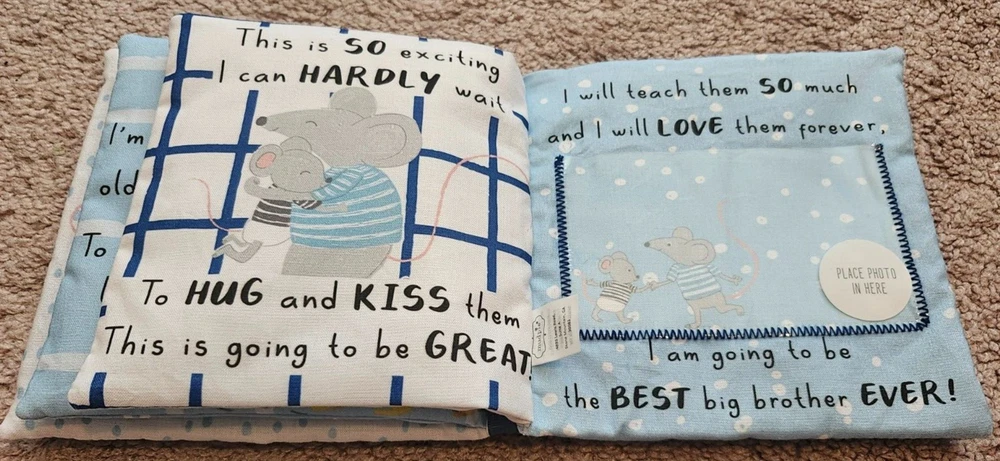 I'm
old
To
This is SO exciting
I can HARDLY wait
To HUG and KISS them
This is going to be GREAT!
I will teach them SO much
and I will LOVE them forever,
PLACE PHOTO
IN HERE
I am going to be
the BEST big brother EVER!